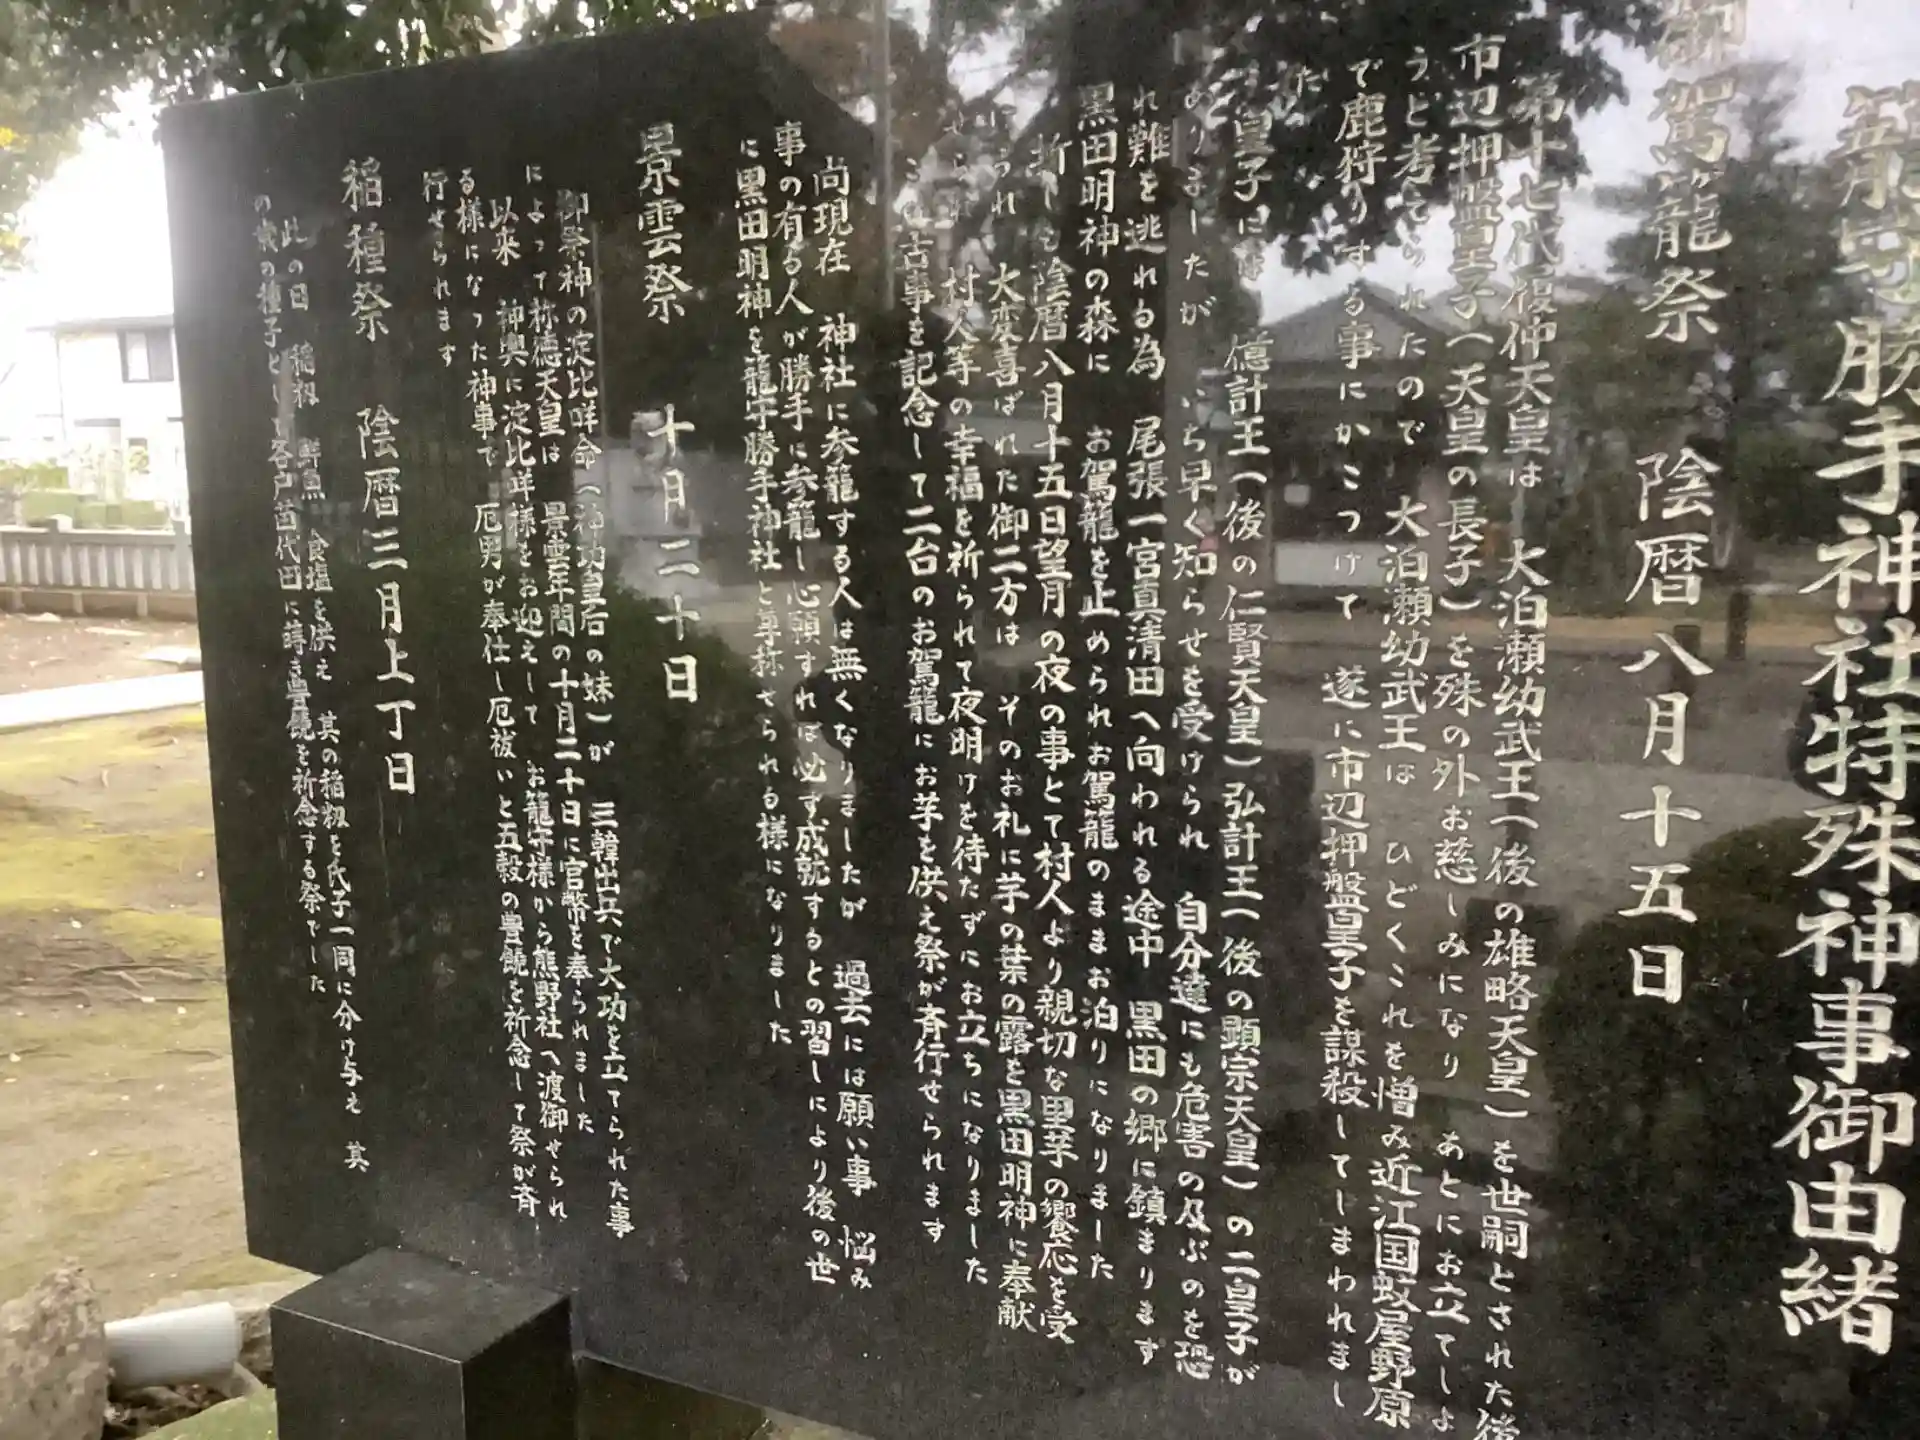 籠守勝手神社特殊神事御由緒
御駕籠祭　陰暦八月十五日
第十七代履仲天皇は　大泊瀬幼武王(後の雄略天皇)を世嗣とされた後
市辺押盤皇子(天皇の長子)を殊の外お慈しみになり　あとにお立てしよ
うと考えられたので　大泊瀬幼武王は　ひどくこれを憎み近江国蚊屋野原
で鹿狩りする事にかこつけて　遂に市辺押盤皇子を謀殺してしまわれまし
た
皇子には　億計王(後の仁賢天皇)弘計王(後の顕宗天皇)の二皇子が
ありましたが　いち早く知らせを受けられ　自分達にも危害の及ぶのを恐
れ難を逃れる為　尾張一宮真清田へ向われる途中　黒田の郷に鎮まります
黒田明神の森に　お駕籠を止められお駕籠のままお泊りになりました
折しも陰暦八月十五日望月の夜の事とて村人より親切な里芋の饗応を受
けられ　大変喜ばれた御二方は　そのお礼に芋の葉の露を黒田明神に奉献
せられ　村人等の幸福を祈られて夜明けを待たずにお立ちになりました
この古事を記念して二台のお駕籠にお芋を供え祭が斉行せられます
尚現在　神社に参籠する人は無くなりましたが　過去には願い事　悩み
事の有る人が勝手に参籠し心願すれば必ず成就するとの習しにより後の世
に黒田明神を籠守勝手神社と尊称される様になりました
景雲祭　十月二十日
御祭神の淀比咩命(神功皇后の妹)が　三韓出兵で大功を立てられた事
によって称徳天皇は　景雲年間の十月二十日に官幣を奉られました
以来　神輿に淀比咩様をお迎えして　お籠守様から熊野社へ渡御せられ
る様になった神事で　厄男が奉仕し厄祓いと五穀の豊饒を祈念して祭が斉
行せられます
稲種祭　陰暦三月上丁日
此の日　稲籾　鮮魚　食塩を供え　其の稲籾を氏子一同に分け与え　其
の歳の種子として各戸苗代田に蒔き豊饒を祈念する祭でした